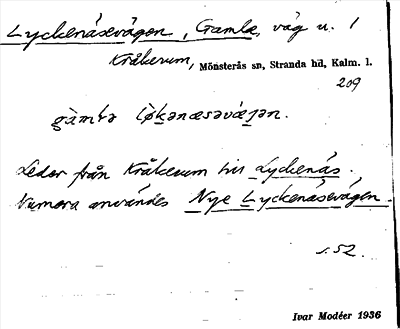 Lyckenäsevägen, Gamla, väg u. 1
Kråkerum, Mönsterås sn, Stranda hd, Kalm. l.
209
gàmla lỳḵənæsəvǽgən.
Leder från Kråkerum till Lyckenäs.
Numera användes Nye Lyckenäsevägen.
s. 52.
Ivar Modéer 1936